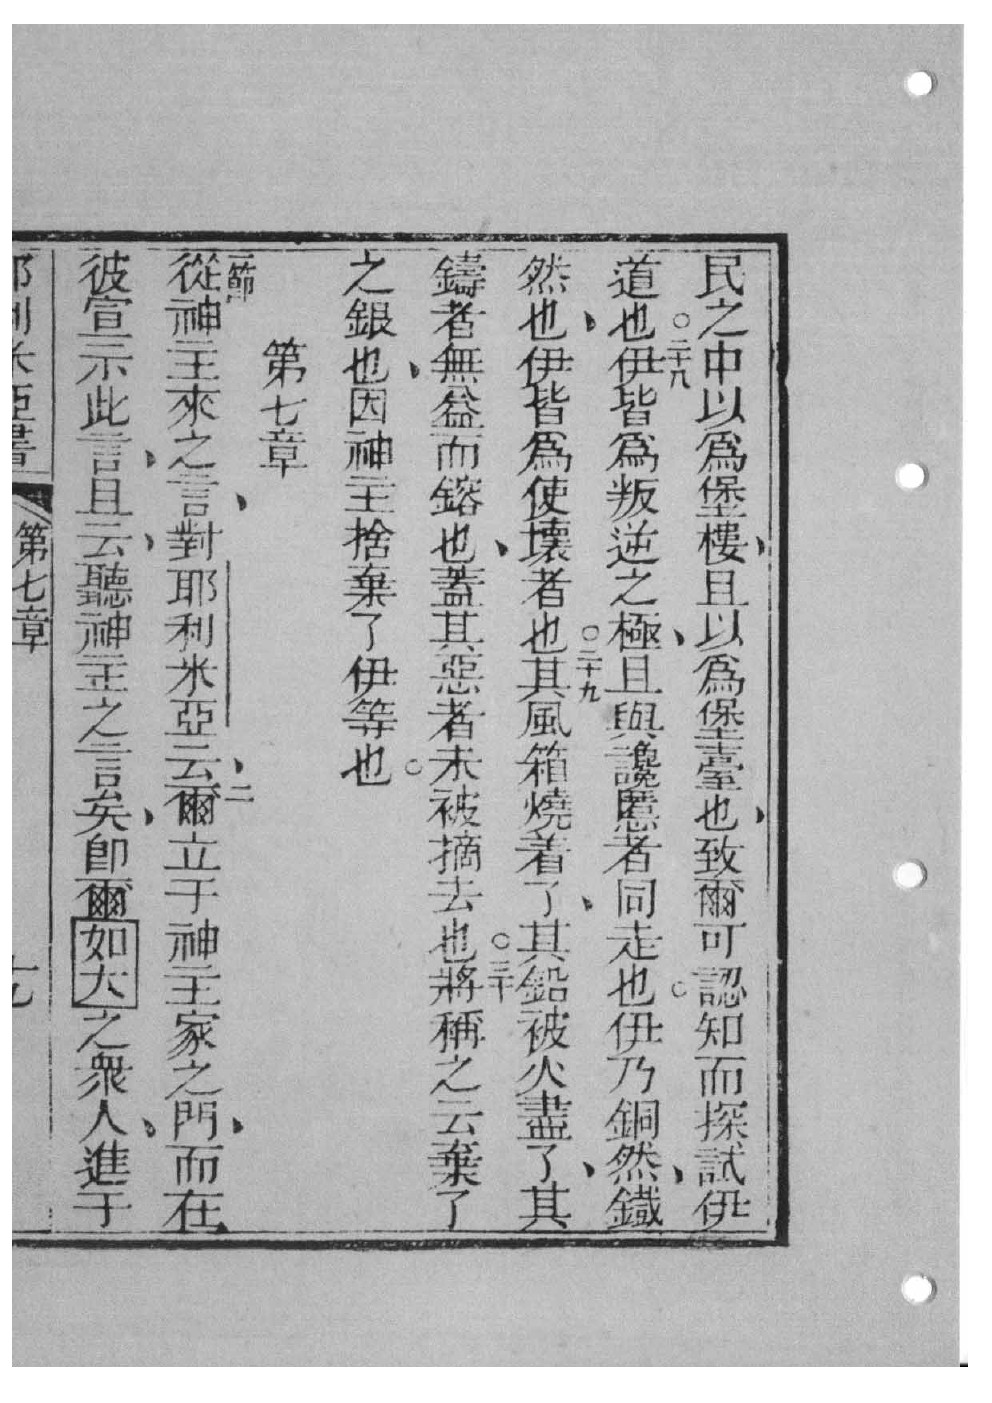 民之中以爲堡樓、且以爲堡臺也、致爾可認知而探試伊
道也○二十八伊皆爲叛逆之極、且與讒慝者同走也○伊乃銅然、鐵
然也、伊皆爲使壞者也○二十九其風箱燒着了、其鉛被火盡了、其
鑄者無益而鎔也、蓋其惡者未被摘去也○三十將稱之云棄了
之銀也、因神主捨棄了伊等也○
第七章
一節從神主來之言、對耶利米亞云、二爾立于神主家之門、而在
彼宣示此言、且云、聽神主之言矣、即爾如大之衆人、進于
耶利米亞書 第七章